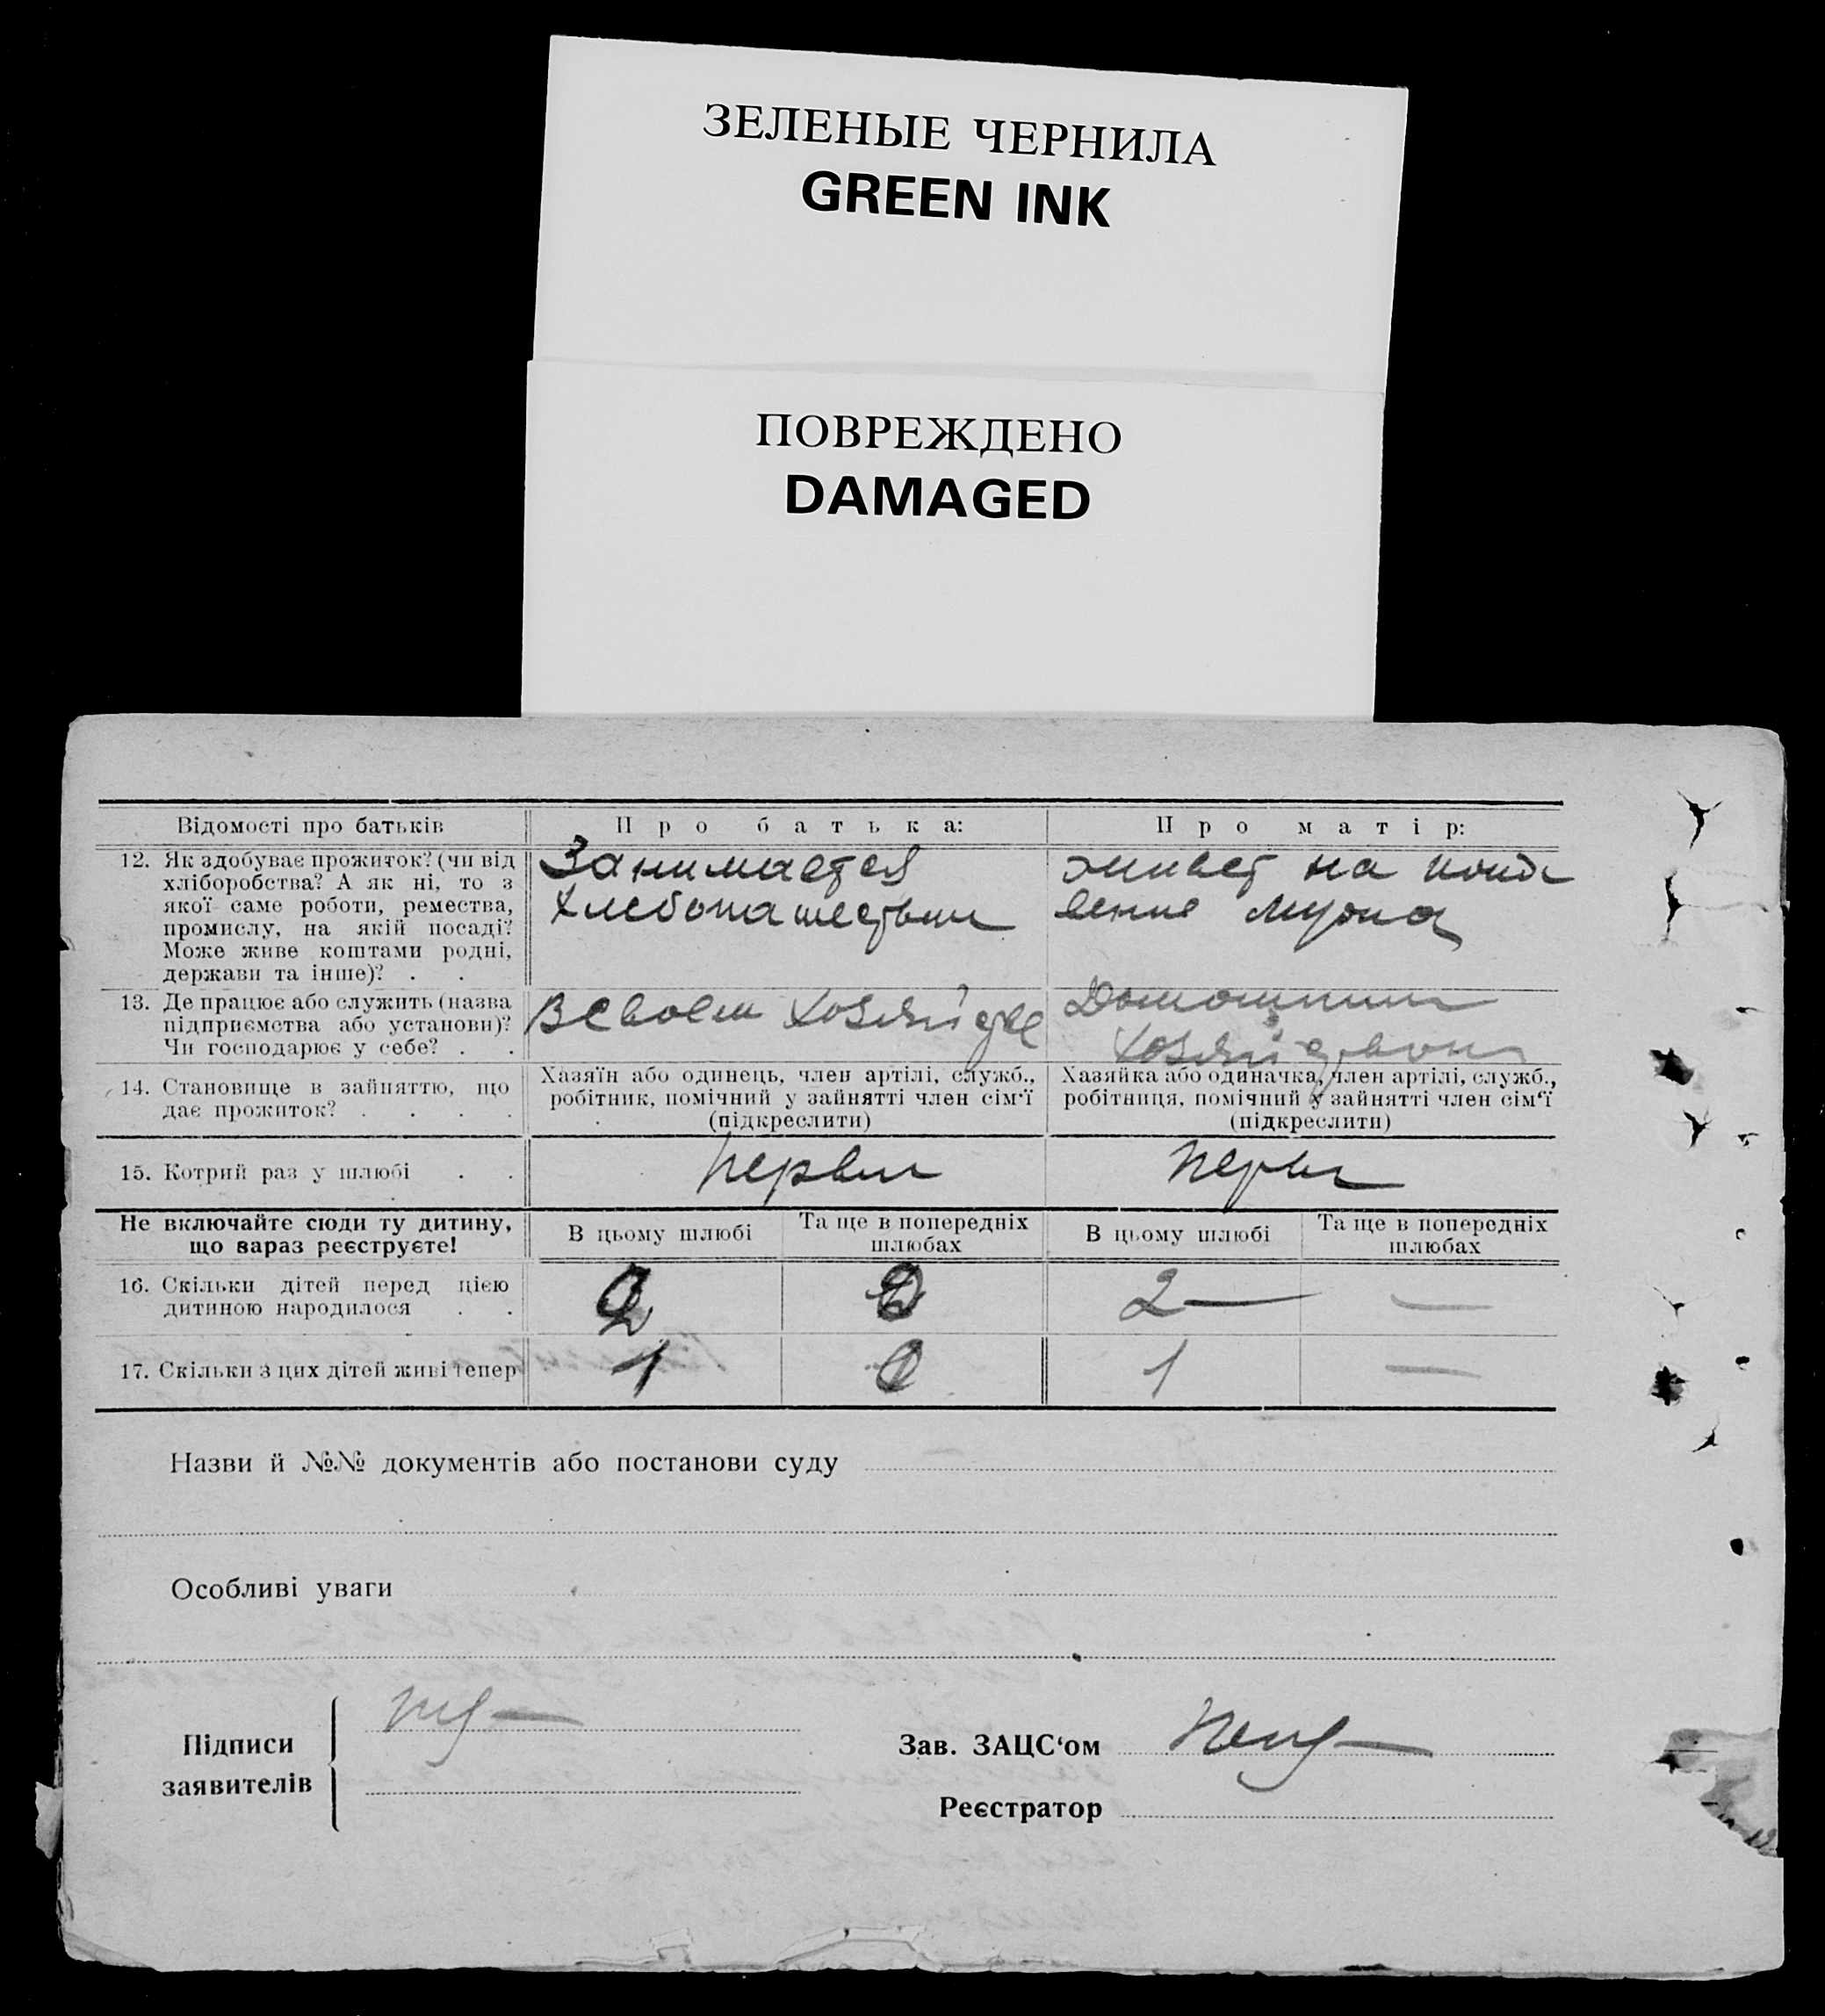 ЗЕЛЕНЫЕ ЧЕРНИЛА
GREEN INK
ПОВРЕЖДЕНО
DAMAGED
Відомості про батьків
Про батька:
Про матір:
12. Як здобуває прожиток? (чи від
хліборобства? А як ні, то з
якої саме роботи, ремества,
промислу, на якій посаді?
Може живе коштами родні,
держави та інше)? . .
Занимается
хлебопашеством
живет на
мужа
13. Де працює або служить (назва
підприємства або установи)?
Чи господарює у себе? . .
В своем хозяйстве
Домашним
хозяйством
14. Становище в зайняттю, що
дає прожиток? . . . .
Хазяїн або одинець, член артілі, служб.,
робітник, помічний у зайнятті член сім‘ї
(підкреслити)
Хазяйка або одиначка, член артілі, служб.,
робітниця, помічний у зайнятті член сім‘ї
(підкреслити)
15. Котрий раз у шлюбі . .
Не включайте сюди ту дитину,
що зараз реєструєте!
В цьому шлюбі
Та ще в попередніх
шлюбах
В цьому шлюбі
Та ще в попередніх
шлюбах
16. Скільки дітей перед цією
дитиною народилося . .
2
2 —
—
17. Скільки з цих дітей живі тепер
1
1
—
Назви й №№ документів або постанови суду
Особливі уваги
Підписи
заявителів
Зав. ЗАЦС‘ом
Реєстратор